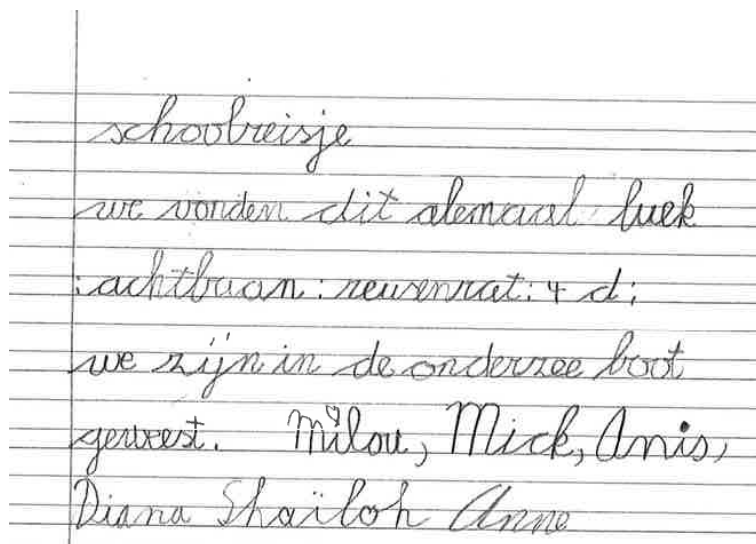 schoolreisje
we vonden dit alemaal luek
:achtbaan: reusenrat: 4 d:
we zijn in de onderzee boot
geweest. Milou, Mick, Anis,
Diana Shaïloh Anne